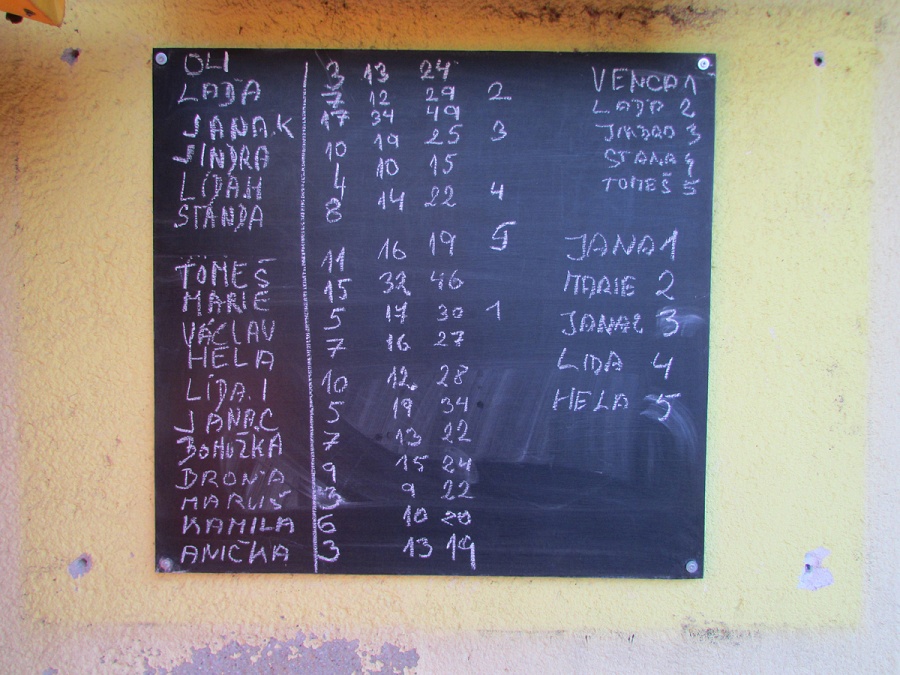 OLI 3 13 24
LAĎA 7 12 29 2
JANA.K 17 34 49
JINDRA 10 19 25 3
LÍDA.H 4 10 15
STANDA 8 14 22 4
TOMEŠ 11 16 19 5
MARIE 15 32 46
VÁCLAV 5 17 30 1
HELA 7 16 27
LÍDA.I 10 12 28
JANA.C 5 19 34
BOHUŽKA 7 13 22
BROŇA 9 15 24
MARUŠ 3 9 22
KAMILA 6 10 20
ANIČKA 3 13 19
VENCA 1
LAĎA 2
JINDRA 3
STANA 4
TOMEŠ 5
JANA 1
MARIE 2
3
LIDA 4
HELA 5